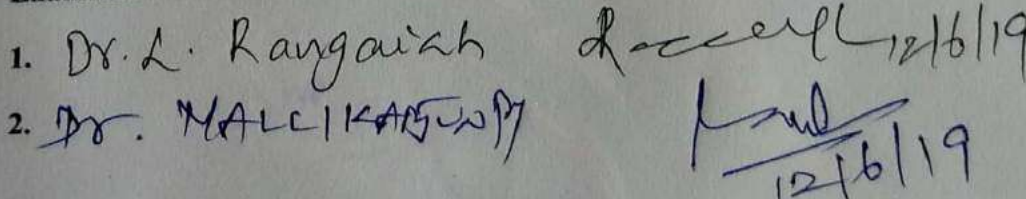 1. Dr. L. Rangaiah 12/6/19
2. Dr. MALLIKARJUN
12/6/19